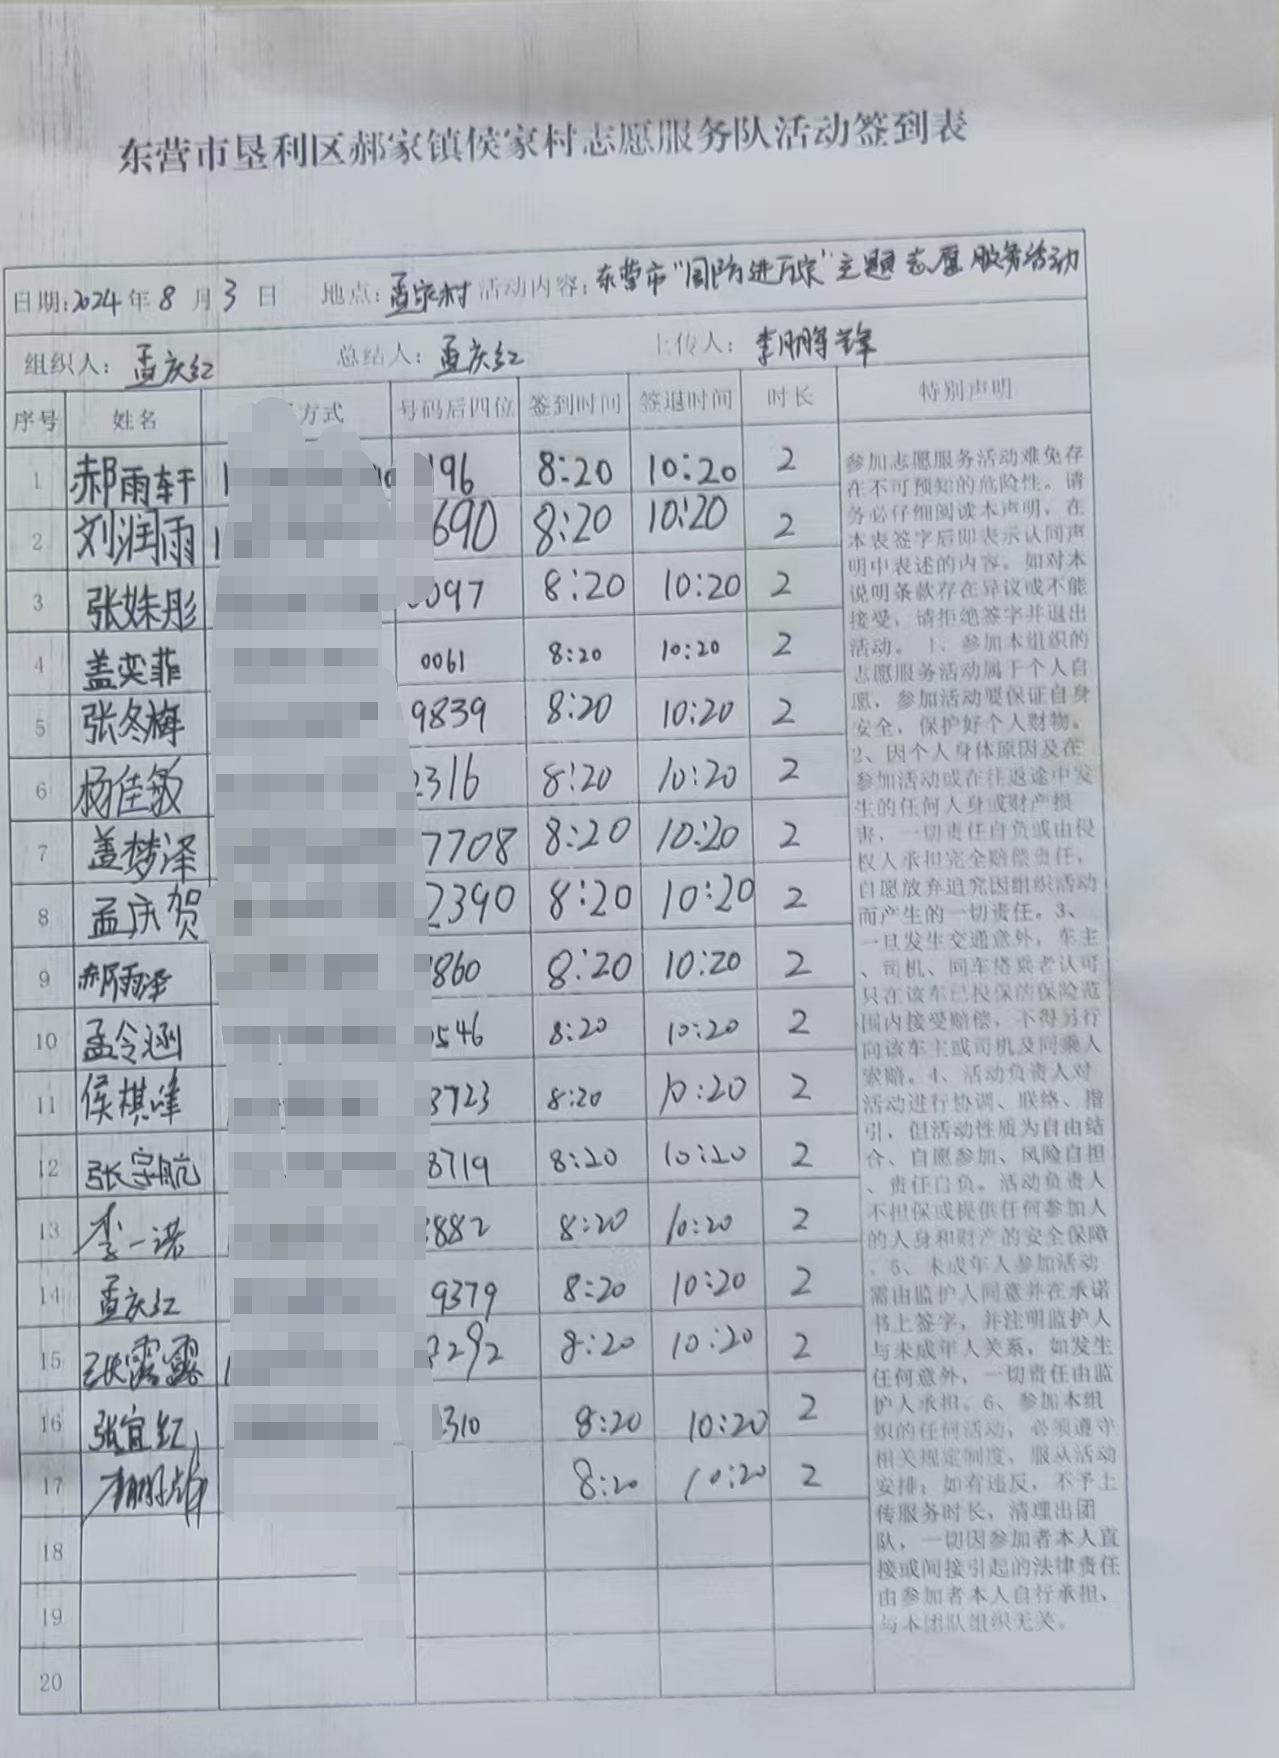 东营市垦利区郝家镇侯家村志愿服务队活动签到表
日期:2024年8月3日 地点:孟家村 活动内容:东营市"国防进万家"主题志愿服务活动
组织人:孟庆红 总结人:孟庆红 上传人:李鹏锋
序号 姓名 方式 号码后四位 签到时间 签退时间 时长 特别声明
1 郝雨轩 196 8:20 10:20 2
2 刘润雨 690 8:20 10:20 2
3 张姝彤 097 8:20 10:20 2
4 盖奕菲 0061 8:20 10:20 2
5 张冬梅 9839 8:20 10:20 2
6 杨佳敏 2316 8:20 10:20 2
7 盖梦泽 7708 8:20 10:20 2
8 孟庆贺 2390 8:20 10:20 2
9 郝雨泽 860 8:20 10:20 2
10 孟令涵 546 8:20 10:20 2
11 侯棋峰 3723 8:20 10:20 2
12 张宇航 8719 8:20 10:20 2
13 李一诺 882 8:20 10:20 2
14 孟庆红 9379 8:20 10:20 2
15 张露露 292 8:20 10:20 2
16 张宜红 310 8:20 10:20 2
17 8:20 10:20 2
18
19
20
参加志愿服务活动难免存
在不可预知的危险性。请
务必仔细阅读本声明,在
本表签字后即表示认同声
明中表述的内容。如对本
说明条款存在异议或不能
接受,请拒绝签字并退出
活动。1、参加本组织的
志愿服务活动属于个人自
愿,参加活动要保证自身
安全,保护好个人财物。
2、因个人身体原因及在
参加活动或在往返途中发
生的任何人身或财产损
害,一切责任自负或由侵
权人承担完全赔偿责任,
自愿放弃追究因组织活动
而产生的一切责任。3、
一旦发生交通意外,车主
、司机、同车搭乘者认可
只在该车已投保的保险范
围内接受赔偿,不得另行
向该车主或司机及同乘人
索赔。4、活动负责人对
活动进行协调、联络、指
引,但活动性质为自由结
合、自愿参加、风险自担
、责任自负。活动负责人
不担保或提供任何参加人
的人身和财产的安全保障
。5、未成年人参加活动
需由监护人同意并在承诺
书上签字,并注明监护人
与未成年人关系,如发生
任何意外,一切责任由监
护人承担。6、参加本组
织的任何活动,必须遵守
相关规定制度,服从活动
安排;如有违反,不予上
传服务时长,清理出团
队,一切因参加者本人直
接或间接引起的法律责任
由参加者本人自行承担,
与本团队组织无关。